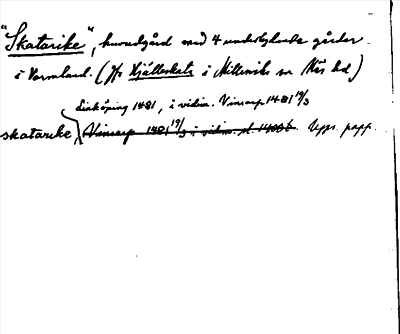 "Skatarike", huvudgård med 4 underlydande gårder
i Värmland. (Jfr Kjällerkats i Millesvik sn Näs hd)
Linköping 1481, i vidim. Vinarp 1481 19/3
skatarike Vinarp 1481 19/3 i vidim. Upps. papp.